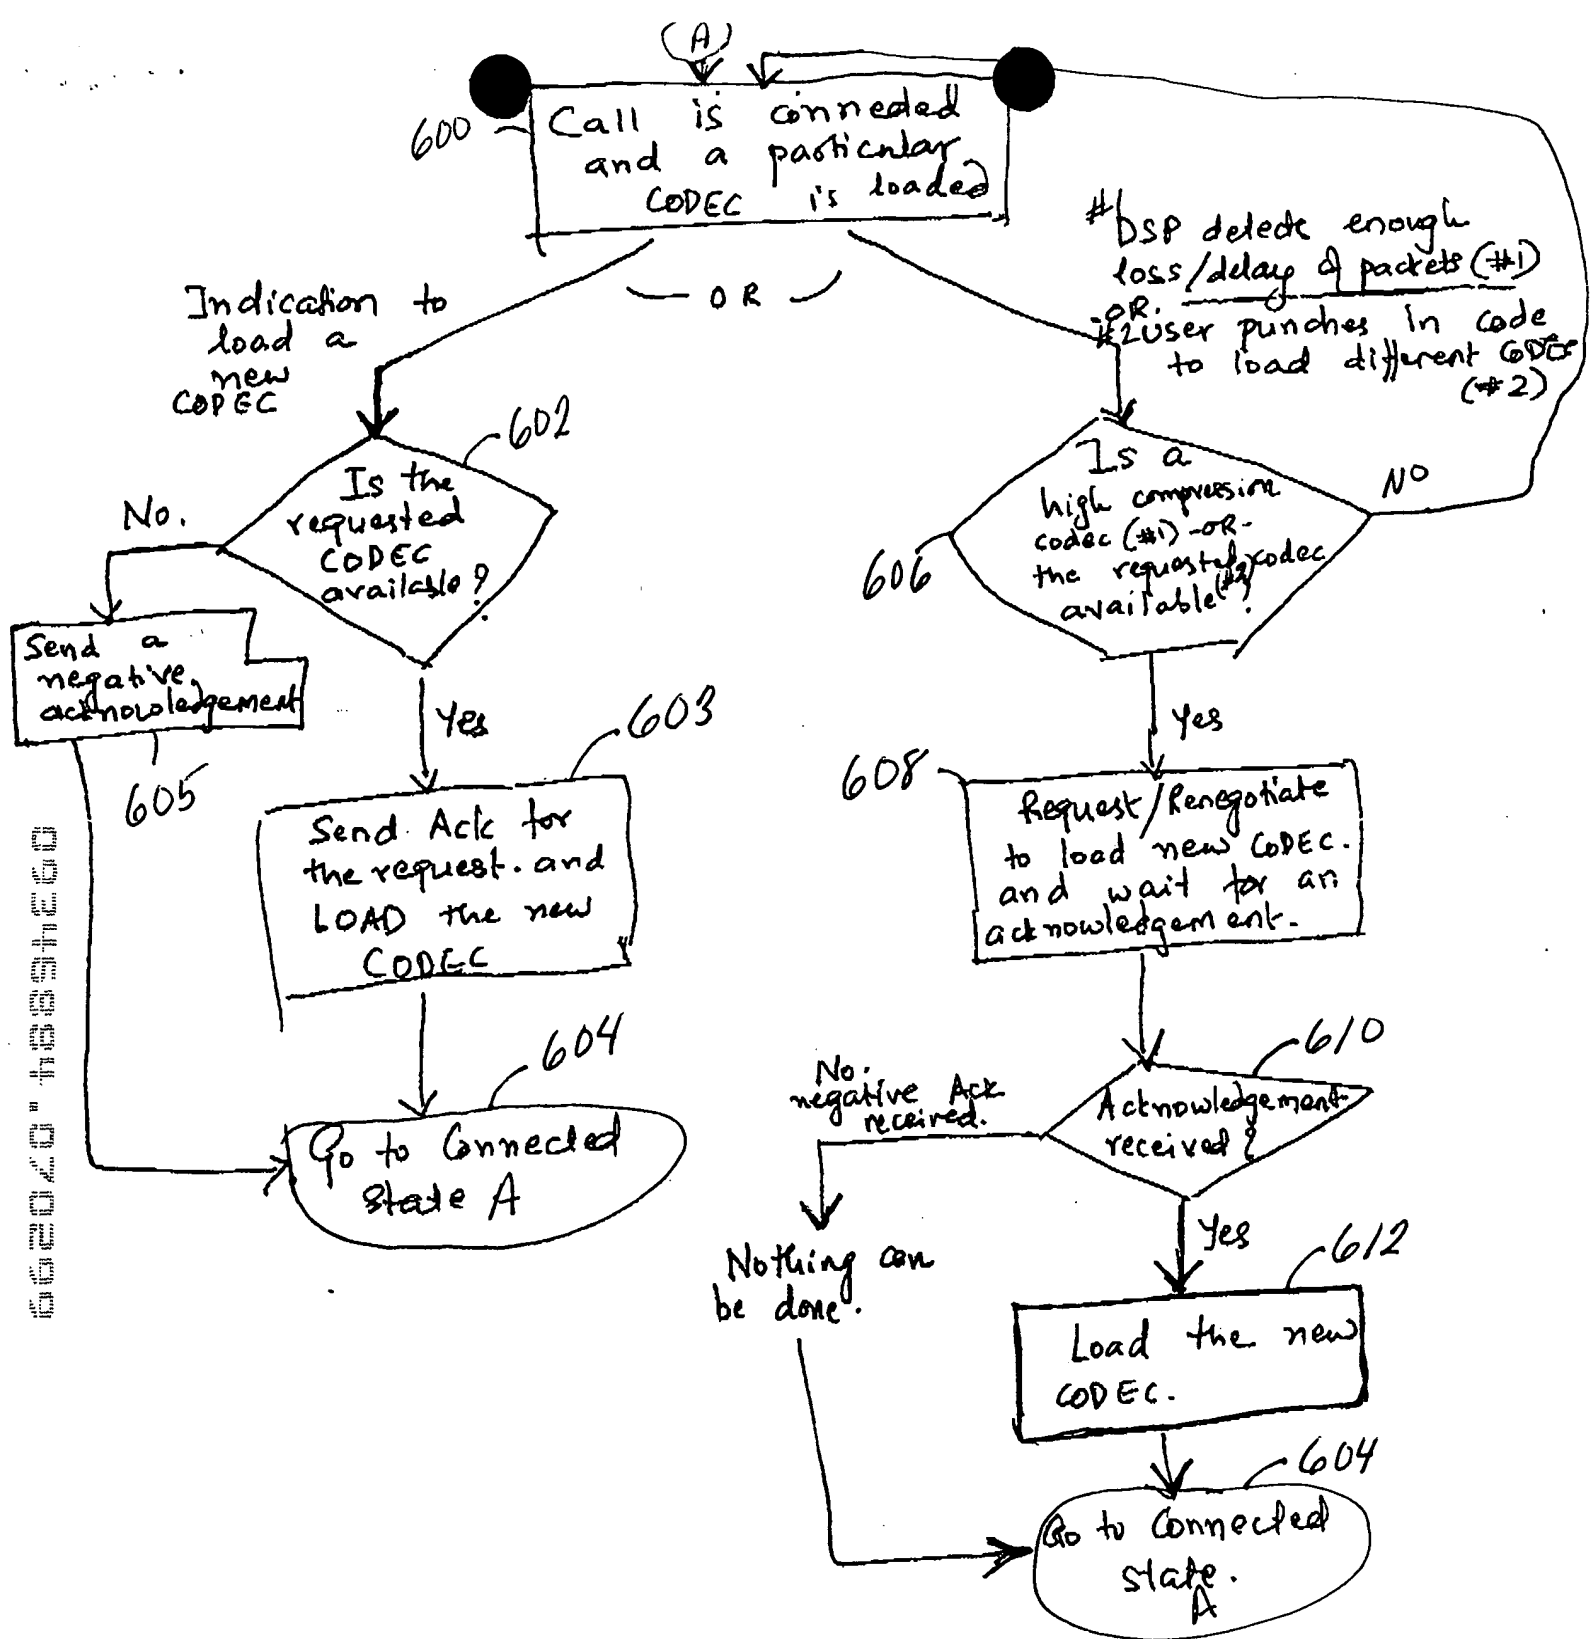 (A)
600
Call is connected
and a particular
CODEC is loaded
Indication to
load a
new
CODEC
OR
# DSP detects enough
loss/delay of packets (#1)
-OR.
#2 User punches in code
to load different CODEC
(#2)
602
Is the
requested
CODEC
available?
No.
Send a
negative
acknowledgement
605
Yes
603
Send Ack for
the request. and
LOAD the new
CODEC
604
Go to Connected
state A
606
Is a
high compression
codec (#1) -OR-
the requested codec
available (#2)?
NO
Yes
608
Request/Renegotiate
to load new CODEC.
and wait for an
acknowledgement.
610
Acknowledgement
received?
No.
negative Ack
received.
Nothing can
be done.
Yes
612
Load the new
CODEC.
604
Go to Connected
state.
A